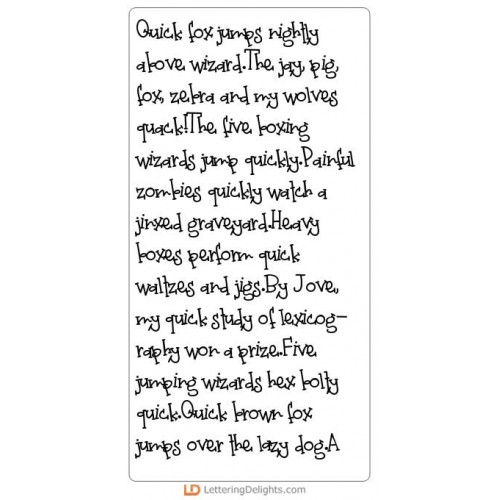 Quick fox jumps nightly
above wizard.The jay, pig,
fox, zebra and my wolves
quack!The five boxing
wizards jump quickly.Painful
zombies quickly watch a
jinxed graveyard.Heavy
boxes perform quick
waltzes and jigs.By Jove,
my quick study of lexicog-
raphy won a prize.Five
jumping wizards hex bolty
quick.Quick brown fox
jumps over the lazy dog.A
LD LetteringDelights.com